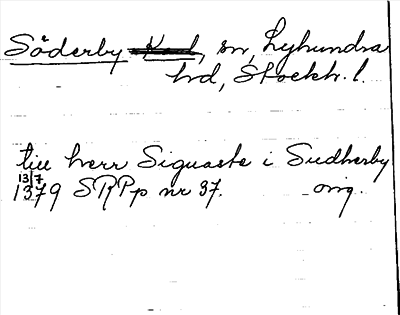 Söderby Karl, sn, Lyhundra
hrd, Stockh. l.
till herr Siguaste i Sudherby
13/7
1379 SRPp nr 37. orig.